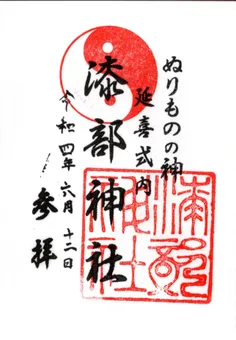 ぬりものの神
延喜式内
漆部神社
令和四年六月十二日
参拝
漆部神社